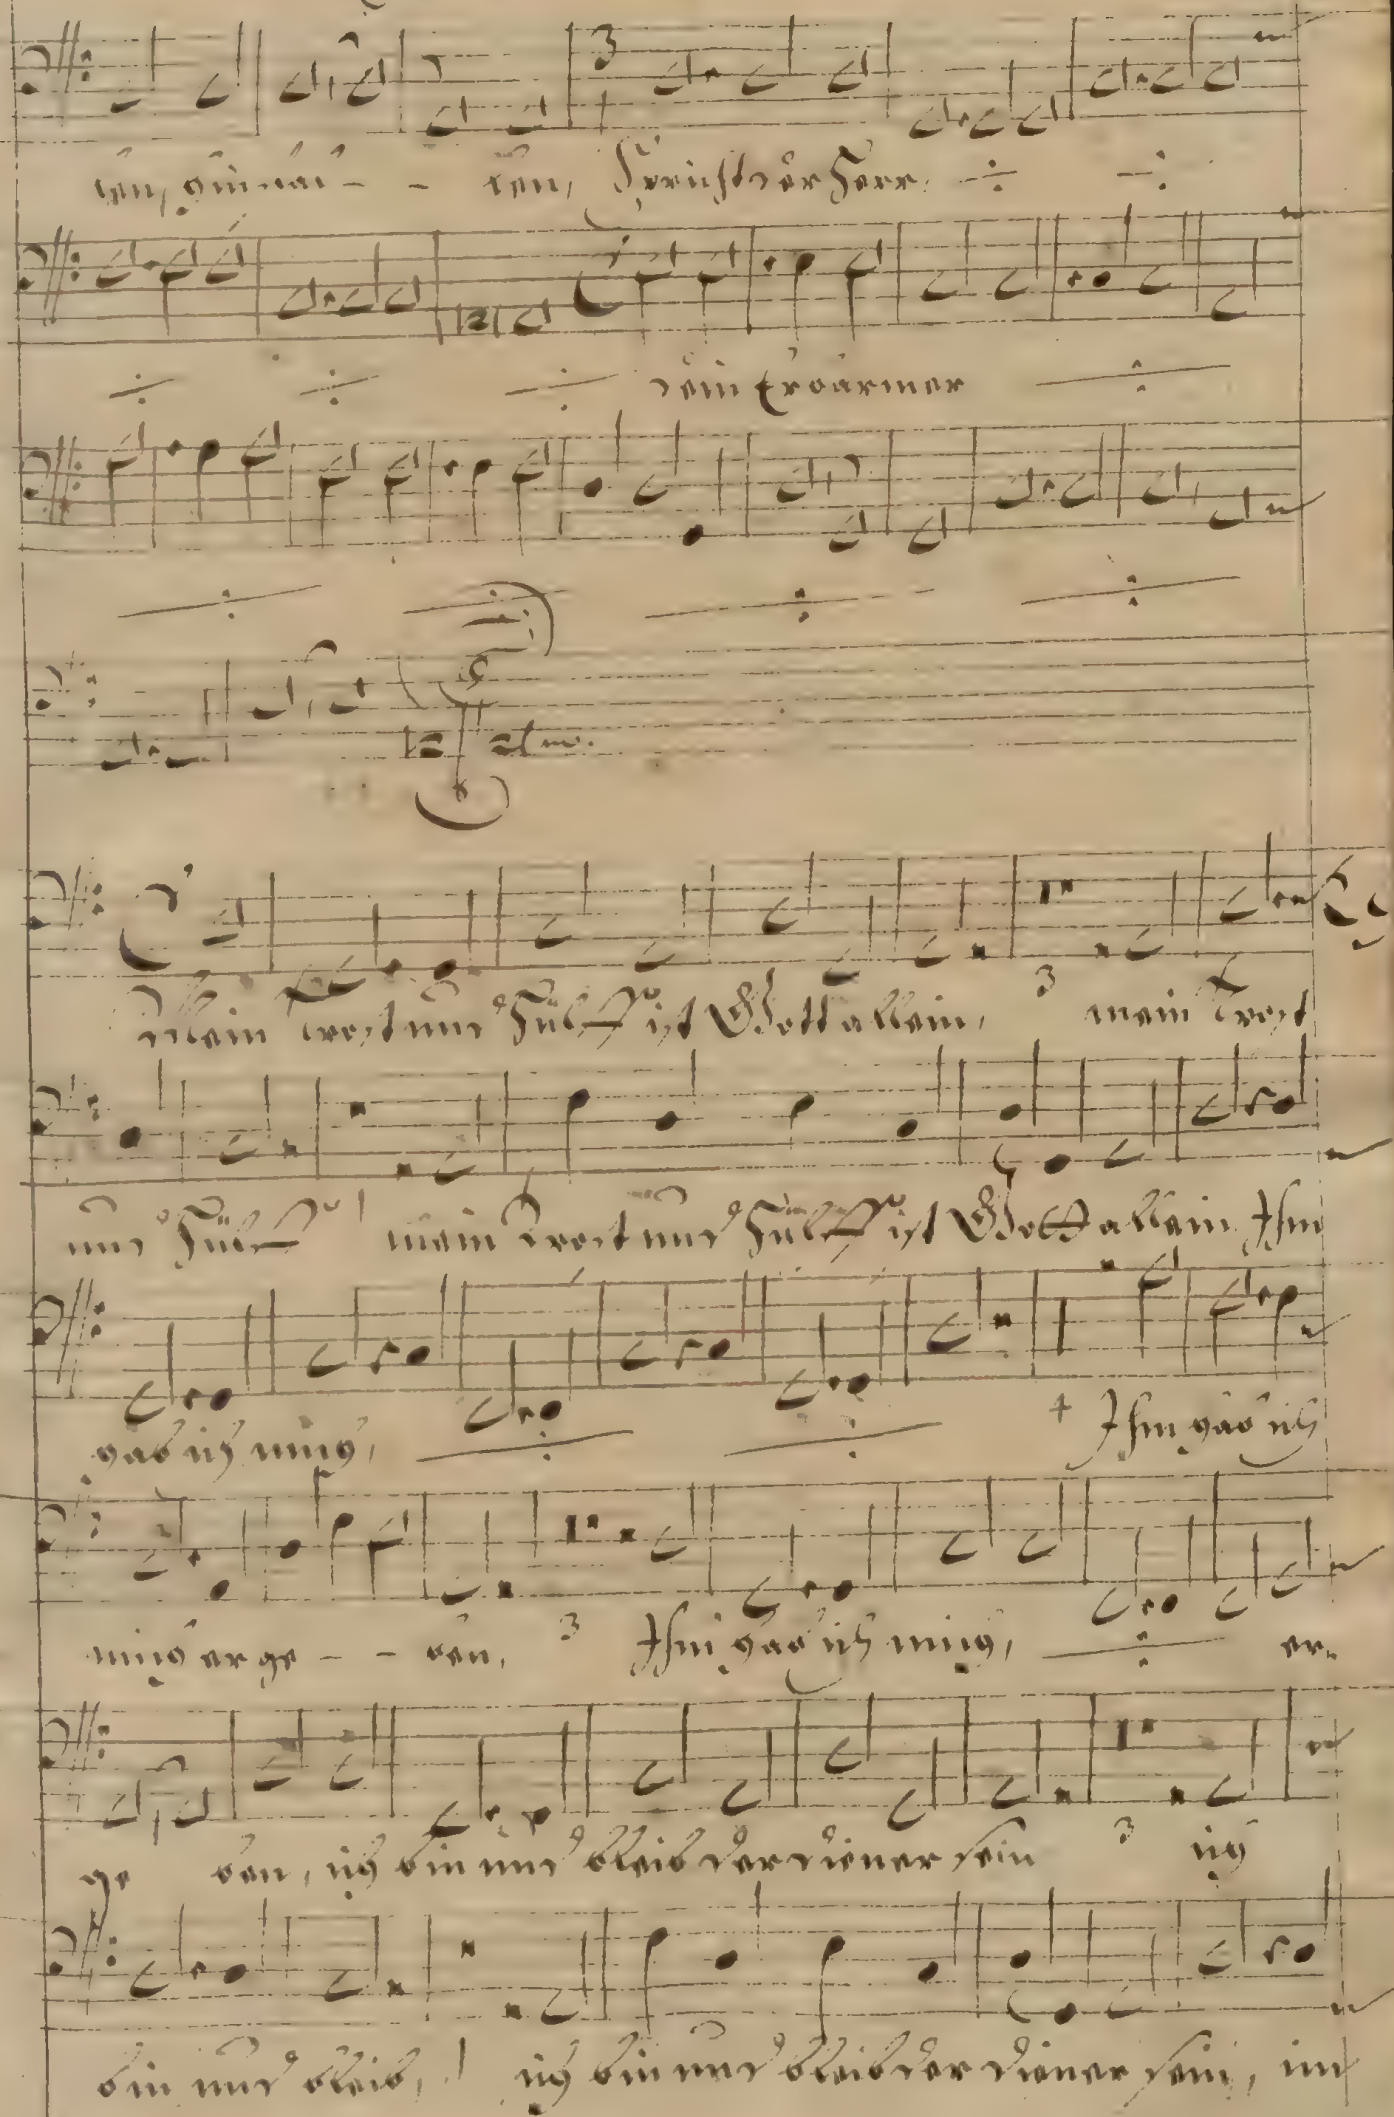 ten, spricht der Herr,
dein Erbarmer
3
Mein Trost und Hülff ist Gott allein, 3 mein Trost
und Hülff mein Trost und Hülff ist Gott allein Ihm
gab ich mich, 4 Ihm gab ich
mich erge - - ben, 3 Ihm gab ich mich, er-
ge ben, ich bin und bleib der diener sein 3 ich
bin und bleib, ich bin und bleib der diener sein, im